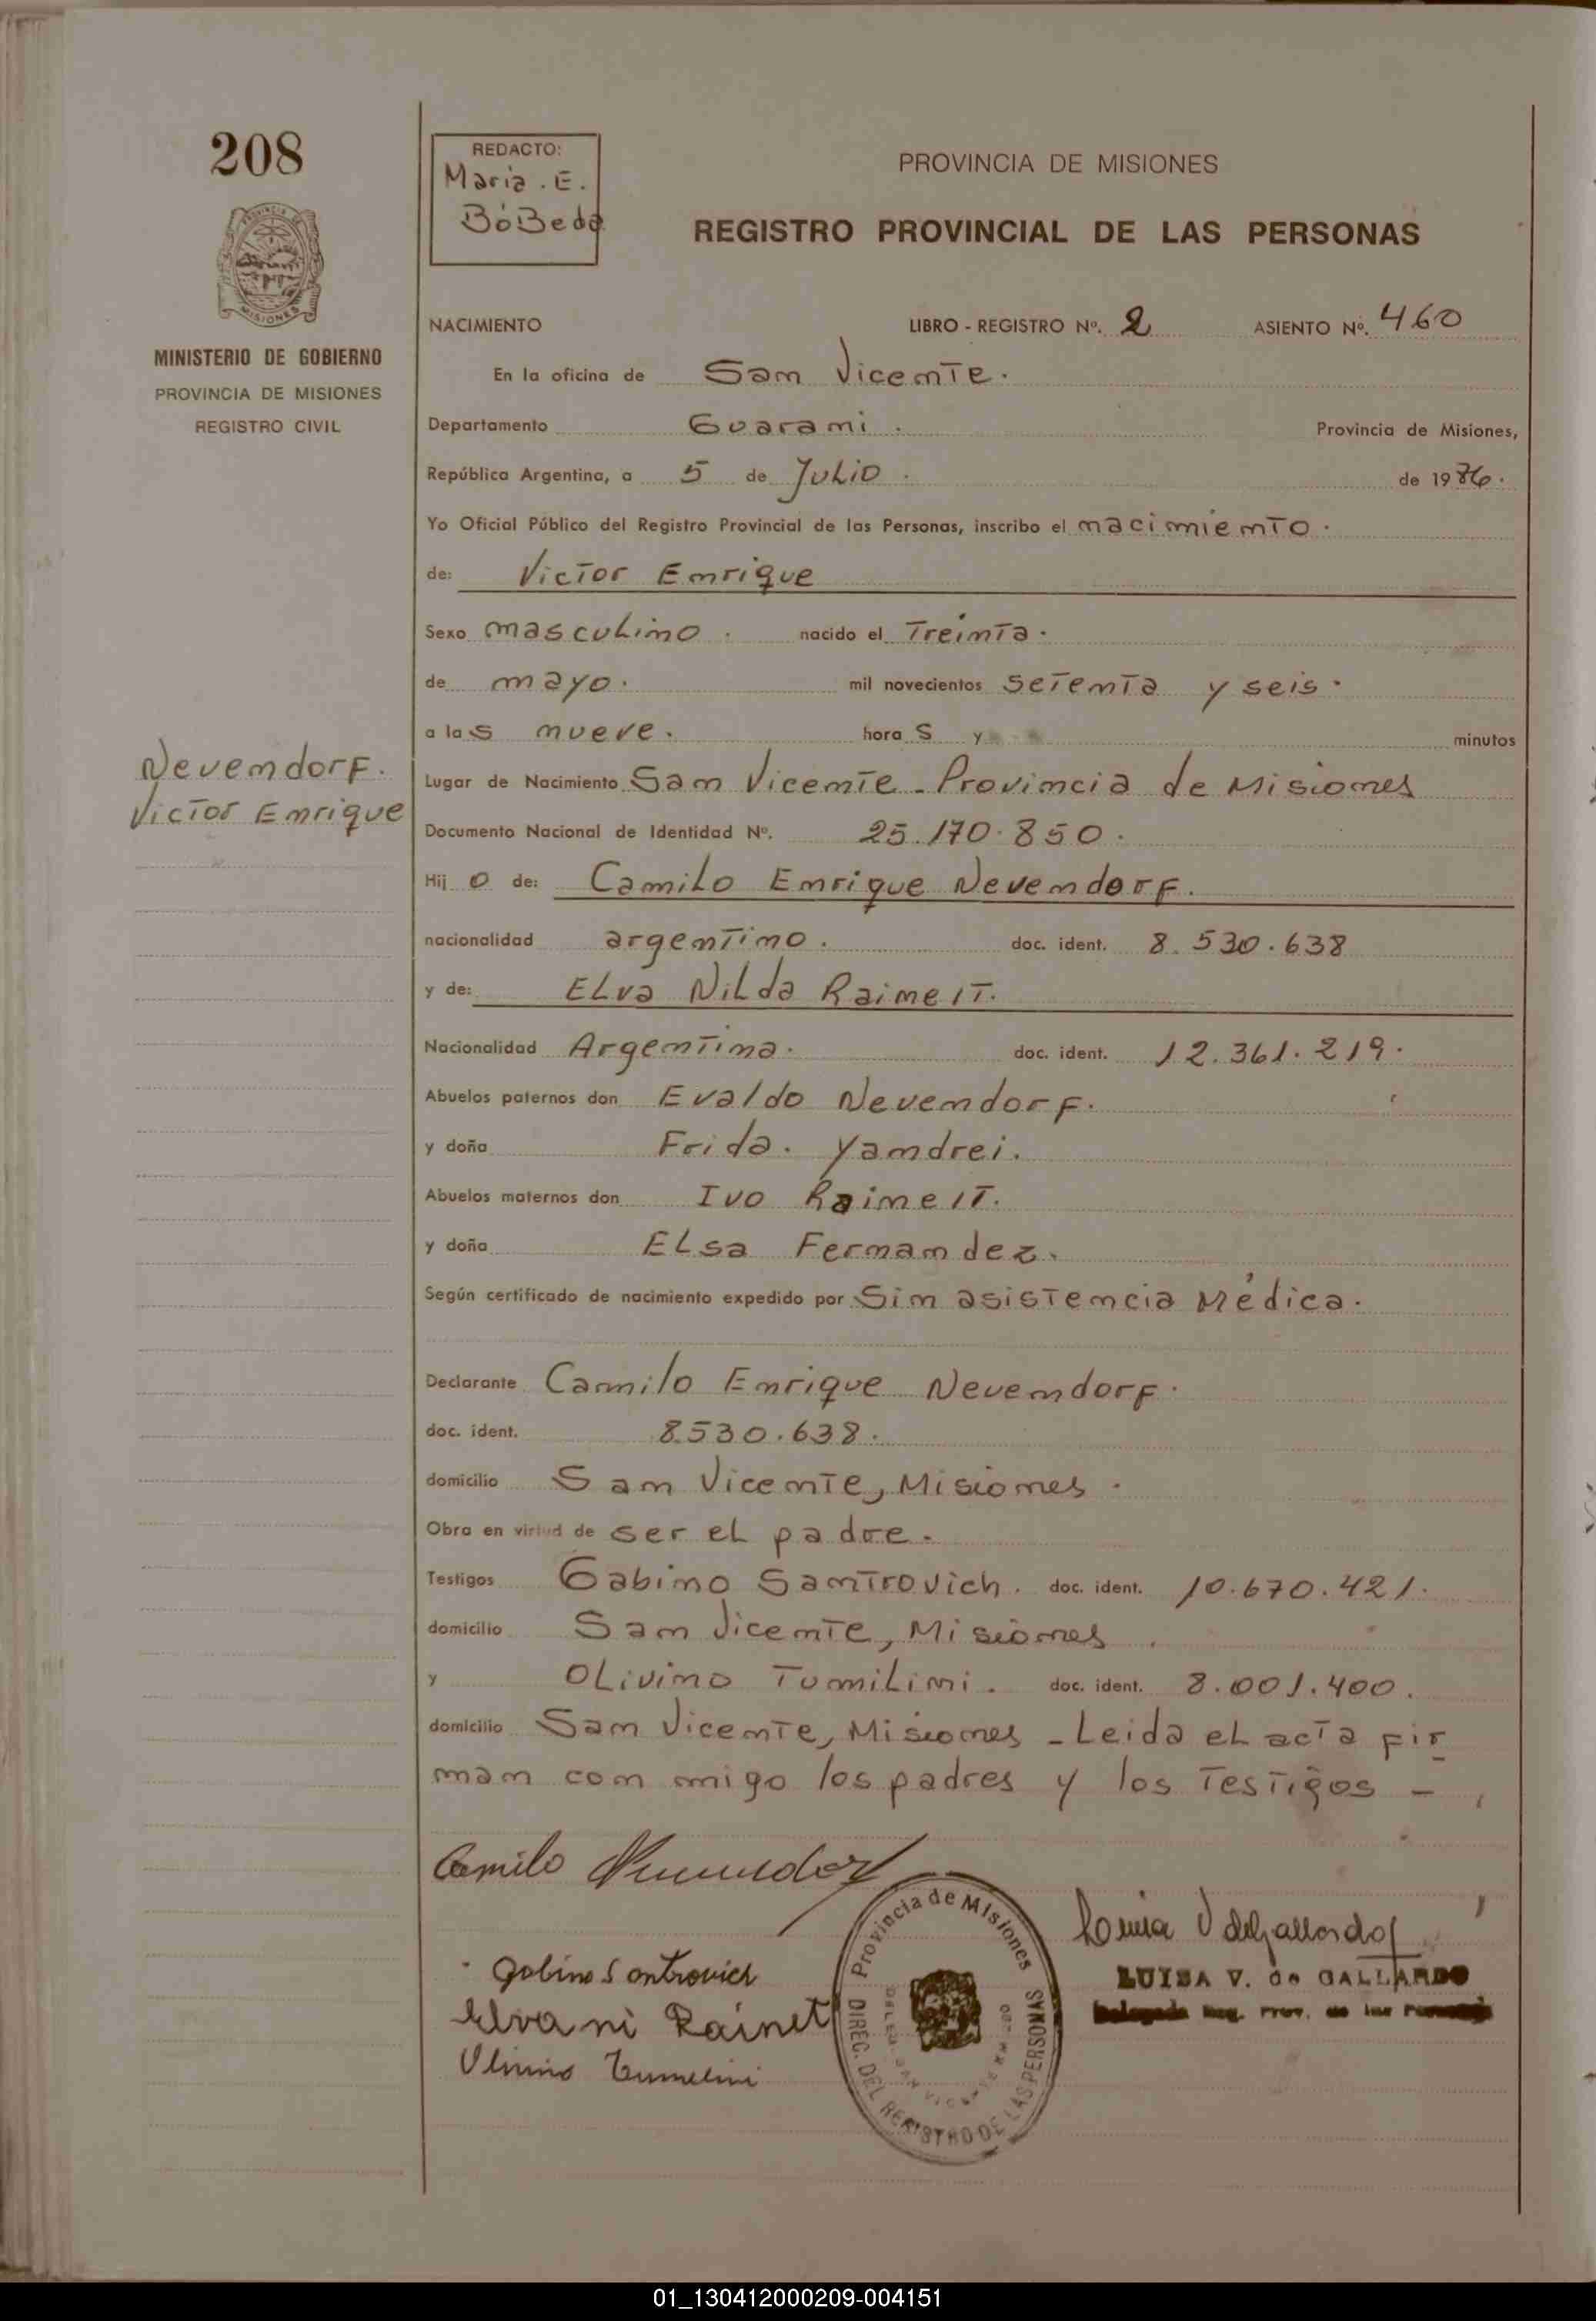 208
MISIONES
MINISTERIO DE GOBIERNO
PROVINCIA DE MISIONES
REGISTRO CIVIL
REDACTO:
Maria. E.
BóBeda
PROVINCIA DE MISIONES
REGISTRO PROVINCIAL DE LAS PERSONAS
NACIMIENTO LIBRO - REGISTRO Nº. 2 ASIENTO Nº. 460
En la oficina de San Vicente.
Departamento Guarani. Provincia de Misiones,
República Argentina, a 5 de Julio. de 1976.
Yo Oficial Público del Registro Provincial de las Personas, inscribo el nacimiento.
de: Victor Enrique
Sexo masculino. nacido el Treinta.
de mayo. mil novecientos setenta y seis.
a las nueve. hora s y minutos
Nevendorf.
Victor Enrique
Lugar de Nacimiento San Vicente - Provincia de Misiones
Documento Nacional de Identidad Nº. 25.170.850.
Hij o de: Camilo Enrique Nevendorf.
nacionalidad argentino. doc. ident. 8.530.638
y de: Elva Nilda Raimeit.
Nacionalidad Argentina. doc. ident. 12.361.219.
Abuelos paternos don Evaldo Nevendorf.
y doña Frida. Yandrei.
Abuelos maternos don Ivo Raimeit.
y doña Elsa Fernandez.
Según certificado de nacimiento expedido por Sin asistencia Médica.
Declarante Camilo Enrique Nevendorf.
doc. ident. 8.530.638.
domicilio San Vicente, Misiones.
Obra en virtud de ser el padre.
Testigos Gabino Santrovich. doc. ident. 10.670.421.
domicilio San Vicente, Misiones.
y Olivino Tumilini. doc. ident. 8.001.400.
domicilio San Vicente, Misiones - Leida el acta fir
man con migo los padres y los Testigos -
Camilo
Gabino Santrovich
Elva ni Rainet
Provincia de Misiones
DIREC. DEL REGISTRO DE LAS PERSONAS
LUISA V. de GALLARDO
Delegada Reg. Prov. de las Personas
01_130412000209-004151